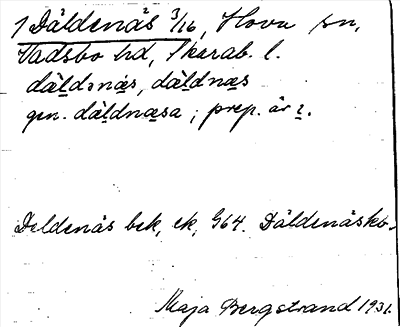 1 Däldenäs 3/16, Hova sn,
Vadsbo hd, Skarab. l.
däldənæs, däldnæs
gen. däldnæsa; prep. är i.
Deldenäs bek, ek, G64. Däldenäskv-
Maja Bergstrand 1931.